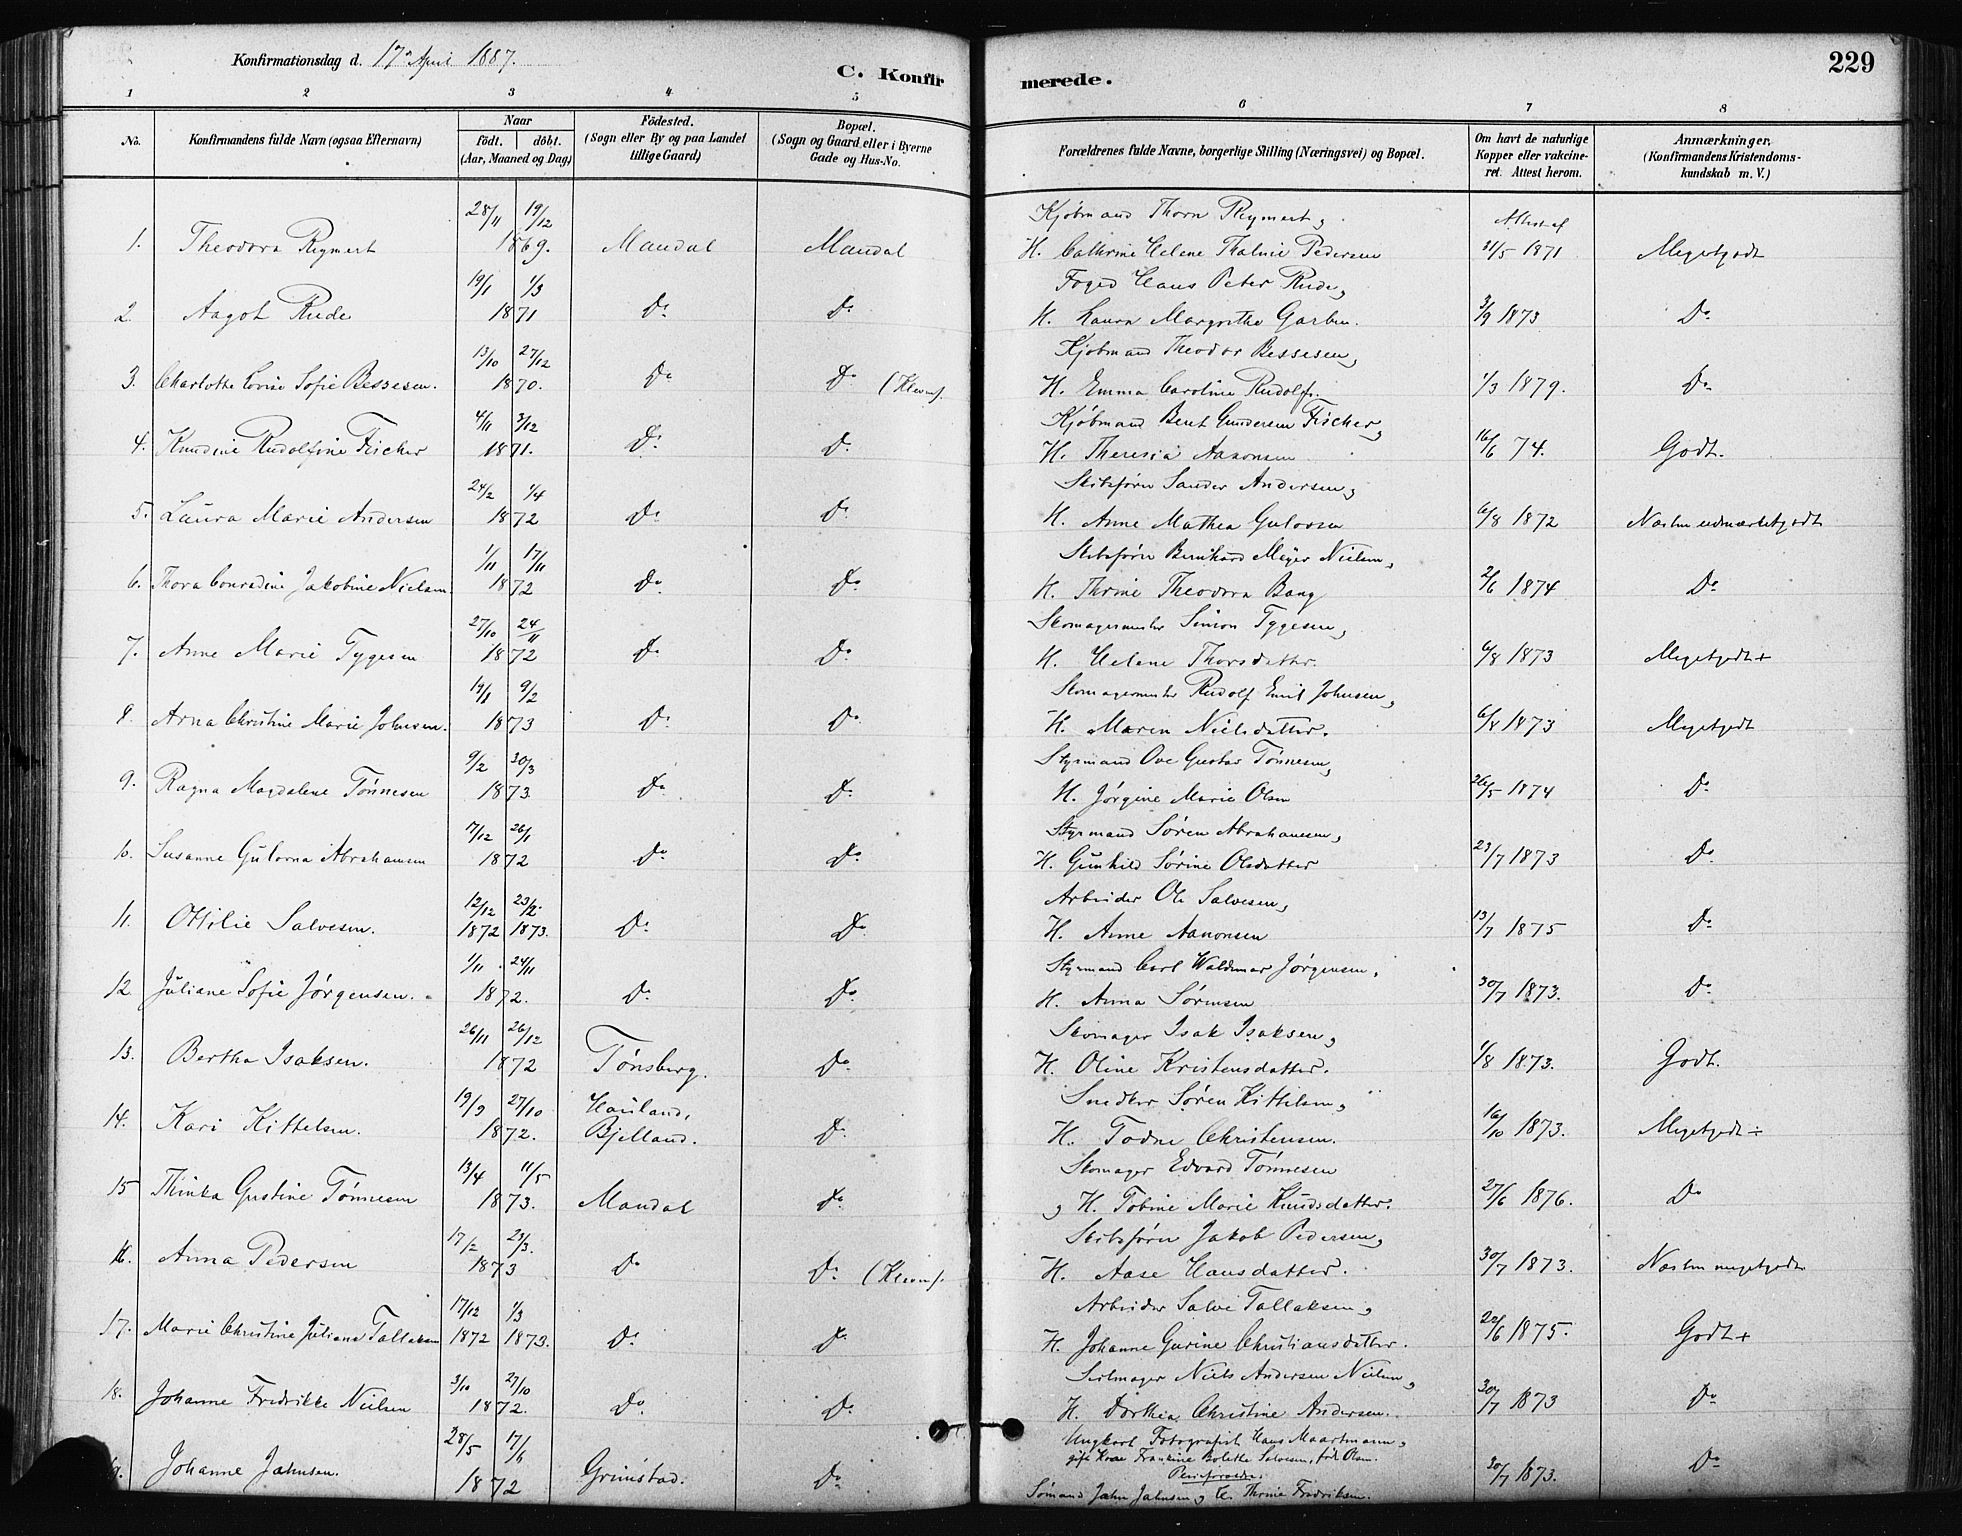 Konfirmationsdag d. 17 April 1887.
C. Konfirmerede.
229
1 2 3 4 5 6 7 8
No.
Konfirmandens fulde Navn (ogsaa Efternavn)
Naar
födt. döbt.
(Aar, Maaned og Dag)
Födested.
(Sogn eller By og paa Landet
tillige Gaard)
Bopæl.
(Sogn og Gaard, eller i Byerne
Gade og Hus-No.
Forældrenes fulde Navne, borgerlige Stilling (Næringsvei) og Bopæl.
Om havt de naturlige
Kopper eller vakcine-
ret. Attest herom.
Anmærkninger.
(Konfirmandens Kristendoms-
kundskab m. V.)
28/11 19/12 Kjøbmand Thorn Reymert, Attest af
1. Theodora Reymert 1869. Mandal Mandal H. Cathrine Helene Thalmie Pedersen 31/5 1871 Megetgodt
19/1 1/3 Foged Hans Peter Rude,
2. Aagot Rude 1871 Do Do H. Laura Margrethe Garben. 3/9 1873 Do
13/10 27/12 Kjøbmand Theodor Bessesen,
3. Charlotte Lovise Sofie Bessesen. 1870. Do Do (Kleven). H. Emma Caroline Rudolfs. 1/3 1879. Do
4/11 3/12 Kjøbmand Bent Gundersen Fischer,
4. Knudine Rudolfine Fischer 1871. Do Do H. Theresia Aanonsen 16/6 74. Godt.
24/2 1/4 Skibsfører Sander Andersen,
5. Laura Marie Andersen 1872 Do Do H. Anne Mathea Gulovsen 6/8 1872 Næsten udmærketgodt
1/11 17/11 Skibsfører Bernhard Meyer Nielsen,
6. Thora Conradine Jakobine Nielsen. 1872 Do Do H. Thrine Theodora Bang 2/6 1874 Do
27/10 24/11 Skomagermester Simon Tygesen,
7. Anne Marie Tygesen 1872 Do Do H. Helene Thorsdatter. 6/8 1873 Megetgodt+
19/1 9/2 Skomagermester Rudolf Emil Johnsen,
8. Anna Christine Marie Johnsen. 1873 Do Do H. Maren Nielsdatter. 6/8 1873 Megetgodt
9/2 30/3 Styrmand Ove Gustav Tønnesen,
9. Ragna Magdalene Tønnesen 1873. Do Do H. Jørgine Marie Olsen 26/5 1874 Do
17/12 26/1 Styrmand Søren Abrahamsen,
10. Susanne Gulovna Abrahamsen 1872 Do Do H. Gunhild Sørine Olsdatter 23/7 1873 Do
12/12 23/2 Arbeider Ole Salvesen,
11. Ottilie Salvesen. 1872 1873. Do Do H. Anne Aanonsen 13/7 1875 Do
1/11 24/11 Styrmand Carl Waldemar Jørgensen,
12. Juliane Sofie Jørgensen. 1872. Do Do H. Anna Sørensen 30/7 1873. Do
26/11 26/12 Skomager Isak Isaksen,
13. Bertha Isaksen. 1872 Tønsberg. Do H. Oline Kristensdatter. 1/8 1873. Godt.
19/9 27/10 Hauland, Snedker Søren Kittelsen,
14. Kari Kittelsen. 1872. Bjelland. Do H. Todne Christensen. 16/10 1873. Megetgodt÷
13/4 11/5 Skomager Edvard Tønnesen
15 Thinka Gustine Tønnesen 1873. Mandal Do , H. Tobine Marie Knudsdatter. 27/6 1876. Do
17/2 23/3. Skibsfører Jakob Pedersen,
16. Anna Pedersen 1873 Do Do (Kleven). H. Aase Hansdatter. 30/7 1873. Næsten megetgodt
17/12 1/3 Arbeider Salve Tallaksen,
17. Marie Christine Juliane Tallaksen 1872 1873. Do Do H. Johanne Gurine Christiansdatter. 22/6 1875. Godt+
3/10 27/10 Seilmager Niels Andersen Nielsen,
18. Johanne Fredrikke Nielsen 1872. Do Do H. Dorthea Christine Andersen. 30/7 1873 Do
28/5 17/6 Ungkarl Fotografist Hans Maartmann,
gift Kone Frankine Bolette Salvesen, født Olsen.
19. Johanne Jahnsen. 1872 Grimstad. Do Pleieforældre. 30/7 1873. Do
Sømand Jahn Jahnsen, H. Thrine Fredriksen.